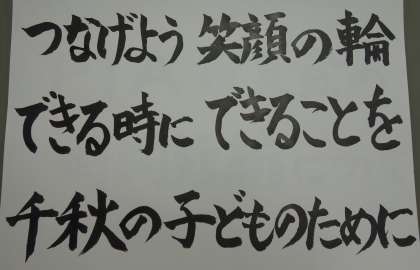 つなげよう 笑顔の輪
できる時に できることを
千秋の子どものために